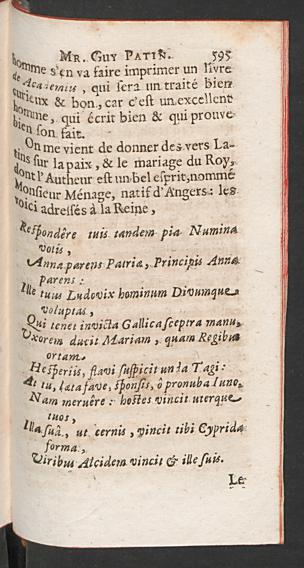 MR. GUY PATIN. 595
homme s'en va faire imprimer un livre
de Academiis, qui sera un traité bien
curieux & bon, car c'est un excellent
homme, qui écrit bien & qui prouve
bien son fait.
On me vient de donner des vers La-
tins sur la paix, & le mariage du Roy,
dont l'Autheur est un bel esprit, nommé
Monsieur Ménage, natif d'Angers: les
voici adressés à la Reine,
Respondêre tuis tandem pia Numina
votis,
Anna parens Patriæ, Principis Anna
parens:
Ille tuus Ludovix hominum Divumque
voluptas,
Qui tenet invicta Gallica sceptra manu,
Vxorem ducit Mariam, quam Regibus
ortam
Hesperiis, flavi suspicit unda Tagi:
At tu, læta fave, sponsis, ô pronuba Iuno,
Nam meruêre: hostes vincit uterque
tuos,
Illa suâ, ut cernis, vincit tibi Cyprida
forma,
Viribus Alcidem vincit & ille suis.
Le